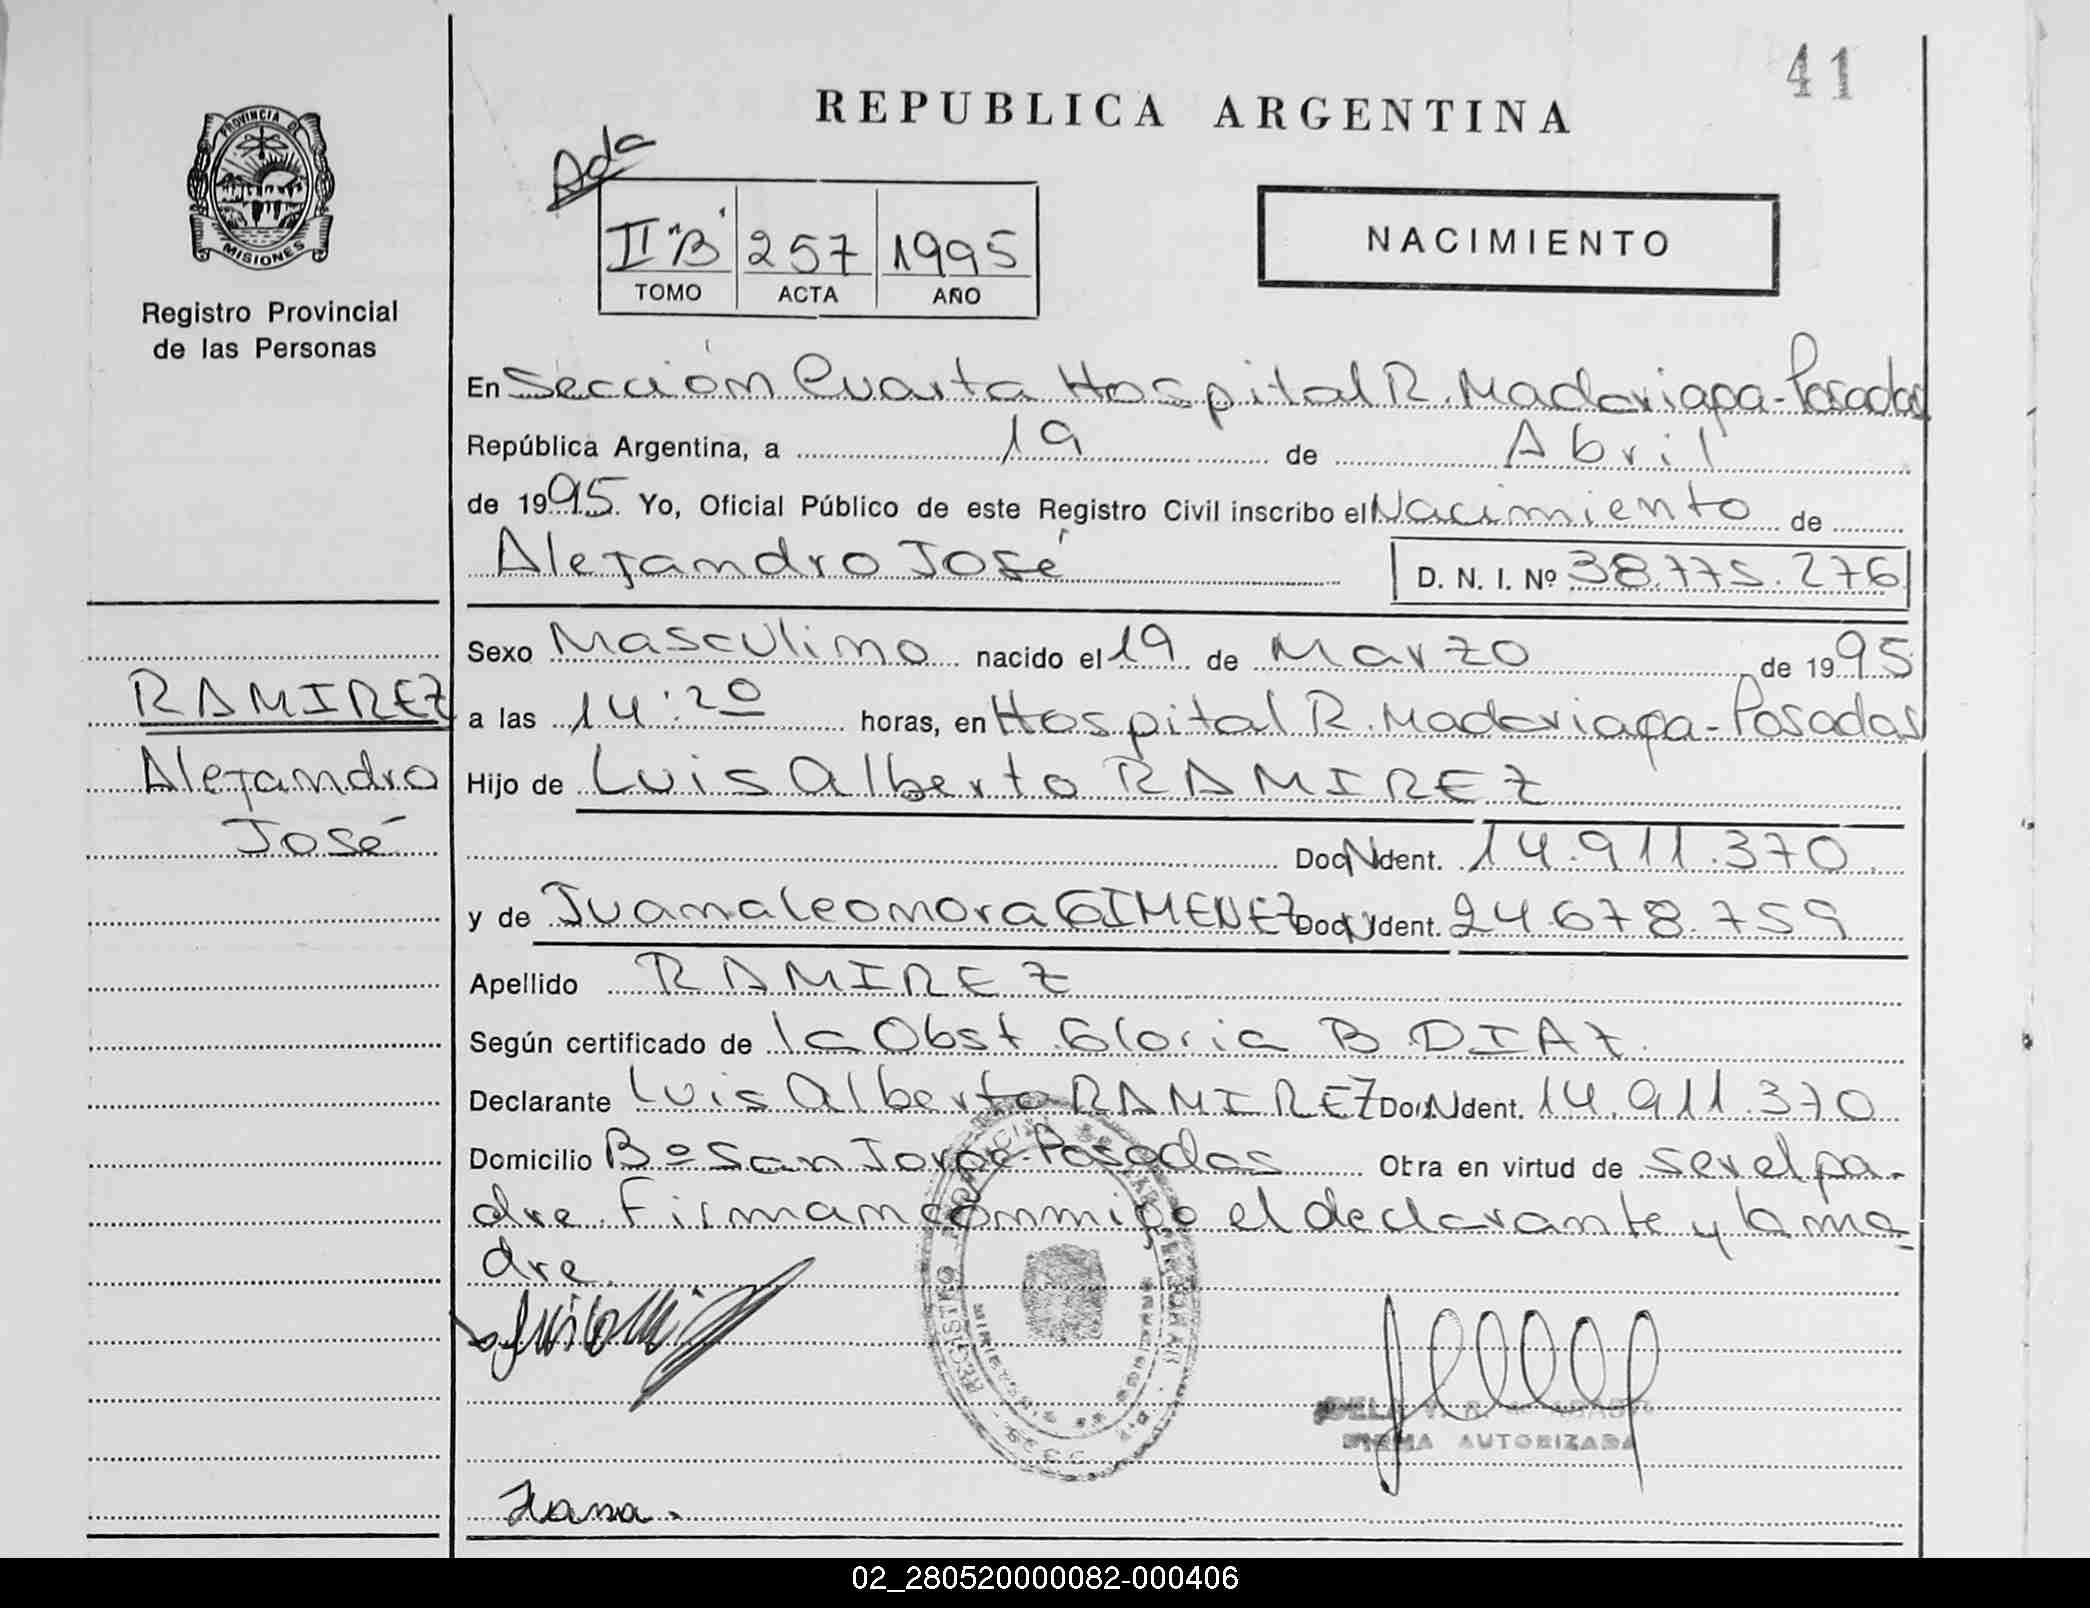 41
REPUBLICA ARGENTINA
PROVINCIA DE
MISIONES
Registro Provincial
de las Personas
Ada
II "B" 257 1995
TOMO ACTA AÑO
NACIMIENTO
En Sección Cuarta Hospital R. Madariaga - Posadas
República Argentina, a 19 de Abril
de 1995. Yo, Oficial Público de este Registro Civil inscribo el Nacimiento de
Alejandro José D. N. I. Nº 38.775.276
Sexo Masculino nacido el 19 de Marzo de 1995
RAMIREZ
Alejandro
José
a las 14:20 horas, en Hospital R. Madariaga - Posadas
Hijo de Luis Alberto RAMIREZ
Doc. Ident. 14.911.370
y de Juana Leonora GIMENEZ Doc. Ident. 24.678.759
Apellido RAMIREZ
Según certificado de la Obst. Gloria B. DIAZ.
Declarante Luis Alberto RAMIREZ Doc. Ident. 14.911.370
Domicilio Bº San Jorge - Posadas Otra en virtud de ser el pa-
dre. Firman conmigo el declarante y la ma-
dre.
FIRMA AUTORIZADA
Juana.
02_280520000082-000406